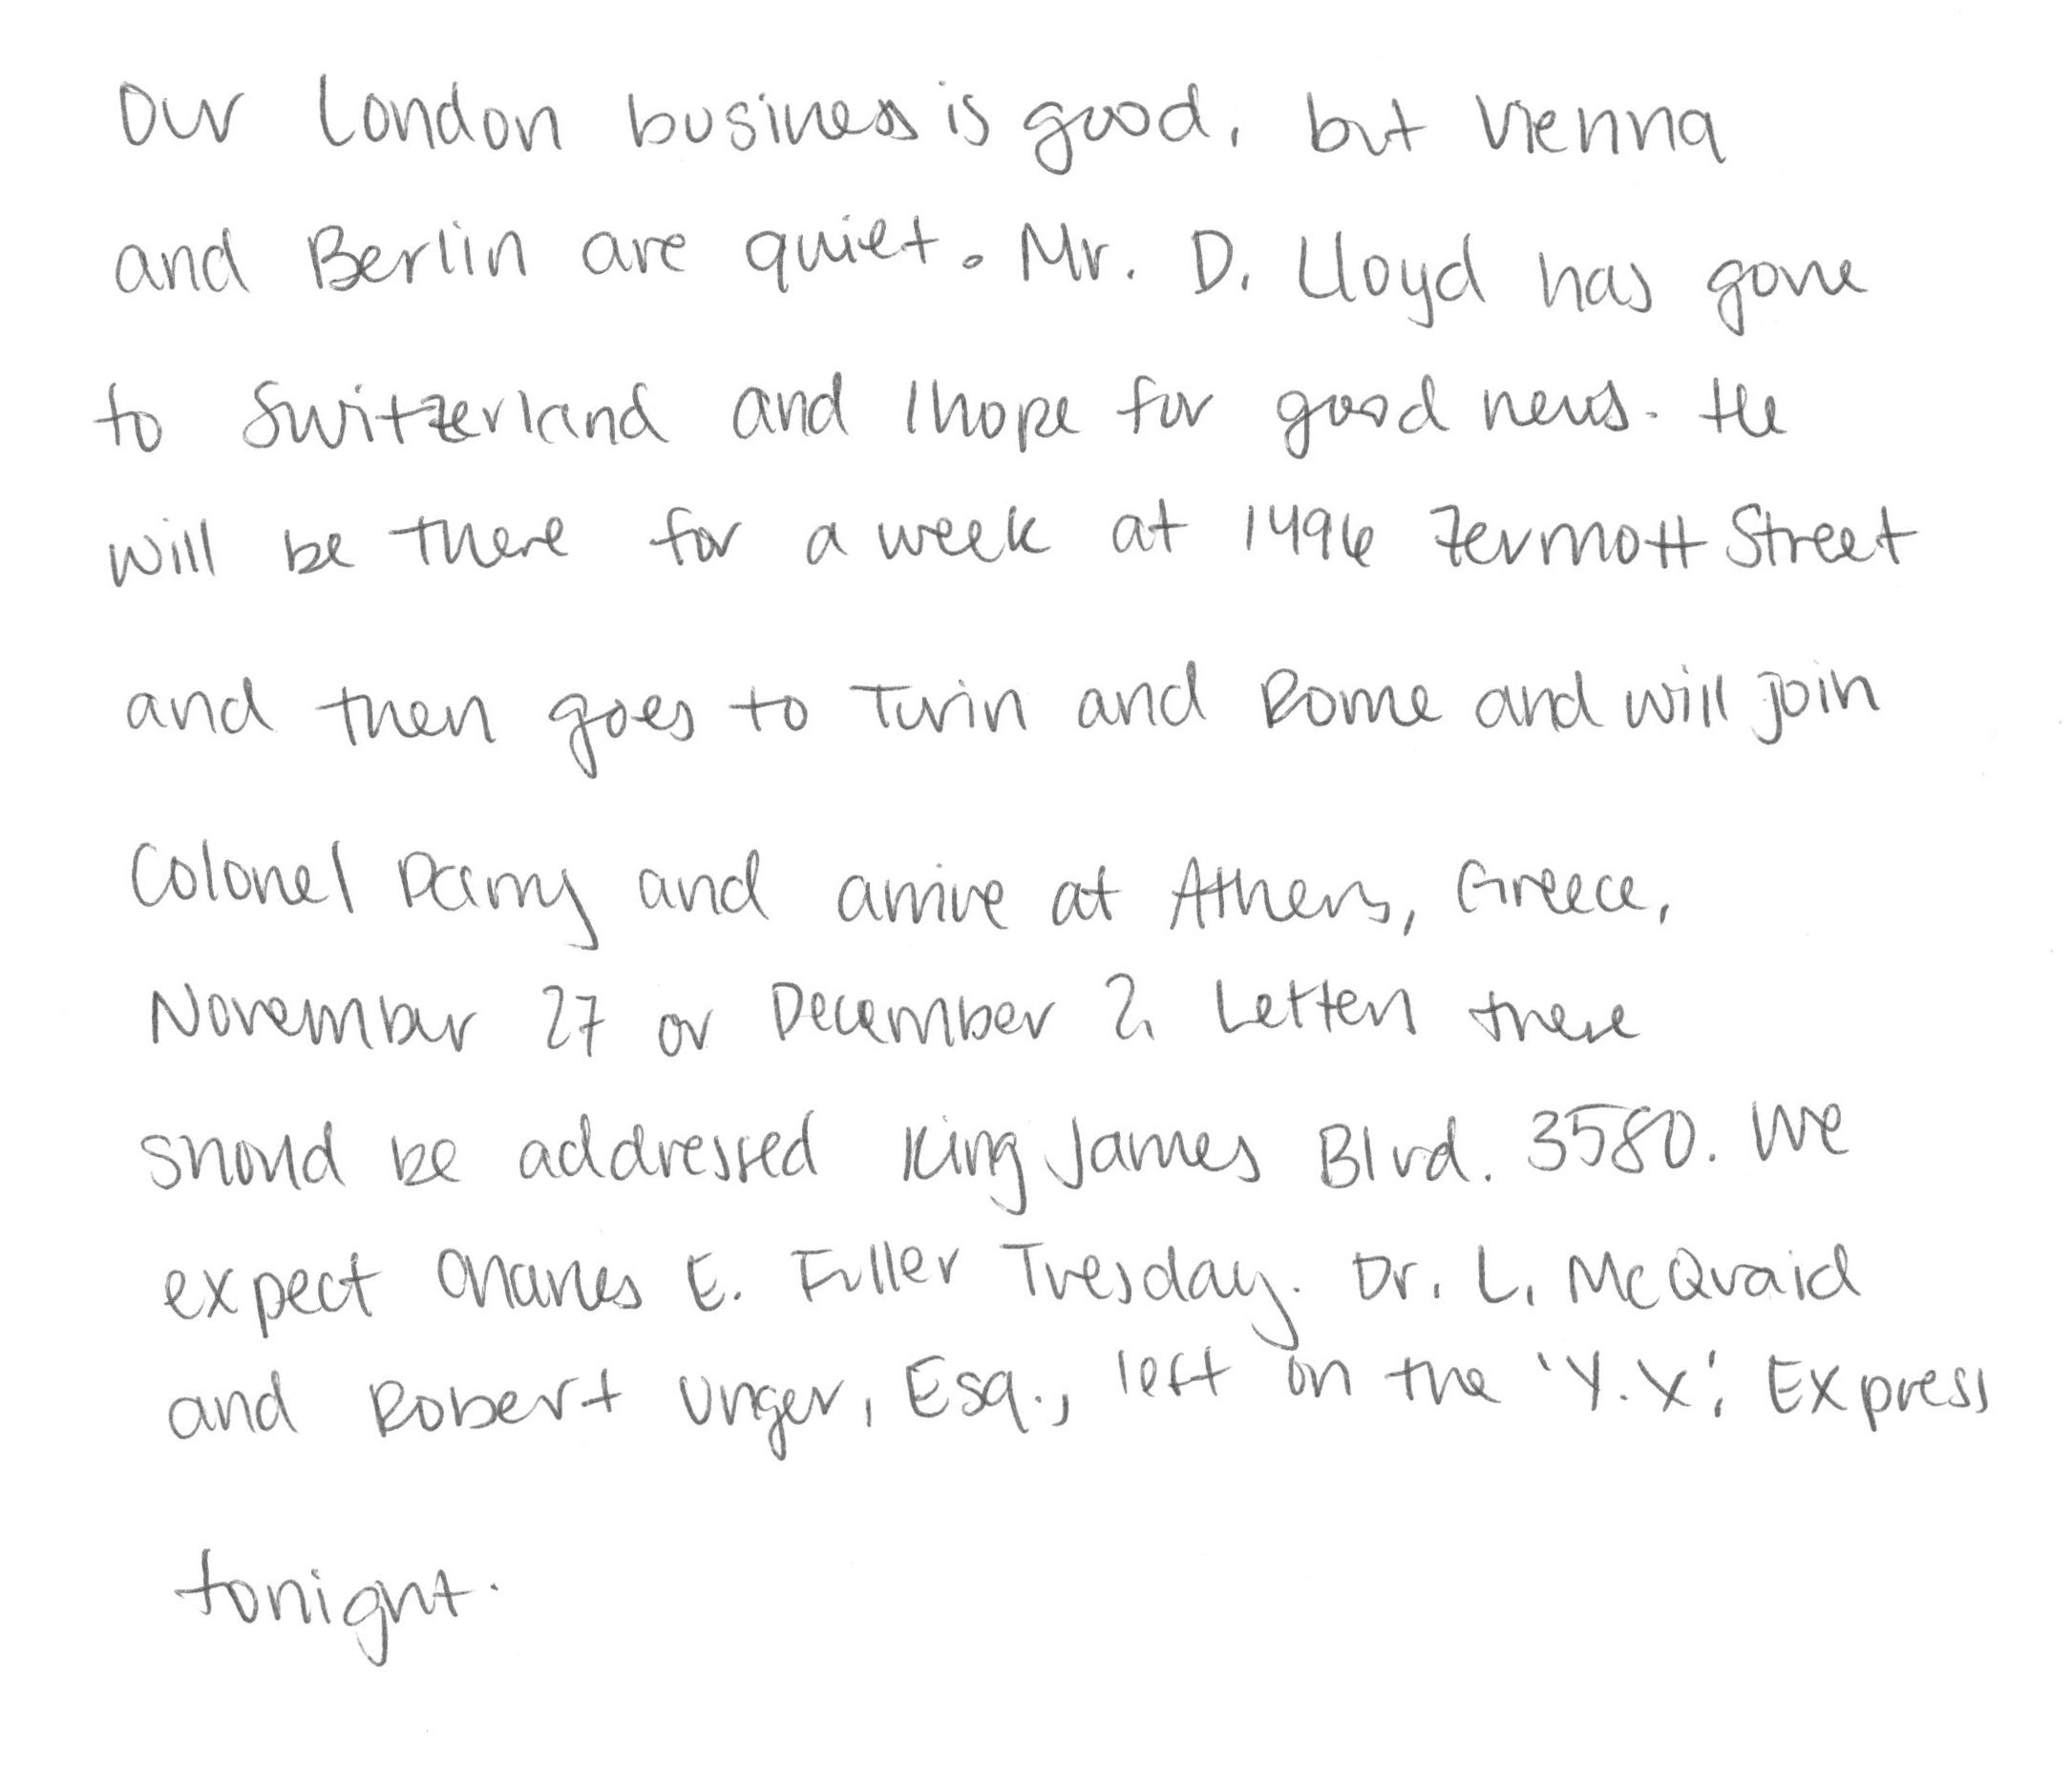 Our London business is good, but Vienna
and Berlin are quiet. Mr. D. Lloyd has gone
to Switzerland and I hope for good news. He
will be there for a week at 1496 Zermott Street
and then goes to Turin and Rome and will join
Colonel Parry and arrive at Athens, Greece,
November 27 or December 2. Letters there
should be addressed King James Blvd. 3580. We
expect Charles E. Fuller Tuesday. Dr. L. McQuaid
and Robert Unger, Esq., left on the 'Y.X'. Express
tonight.